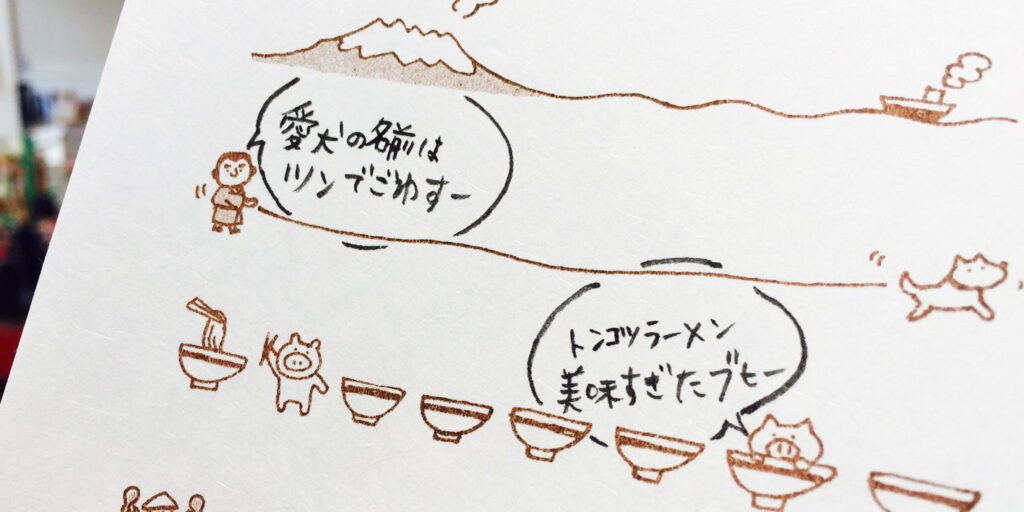 愛犬の名前は
ツンでごわすー
トンコツラーメン
美味すぎたブヒー